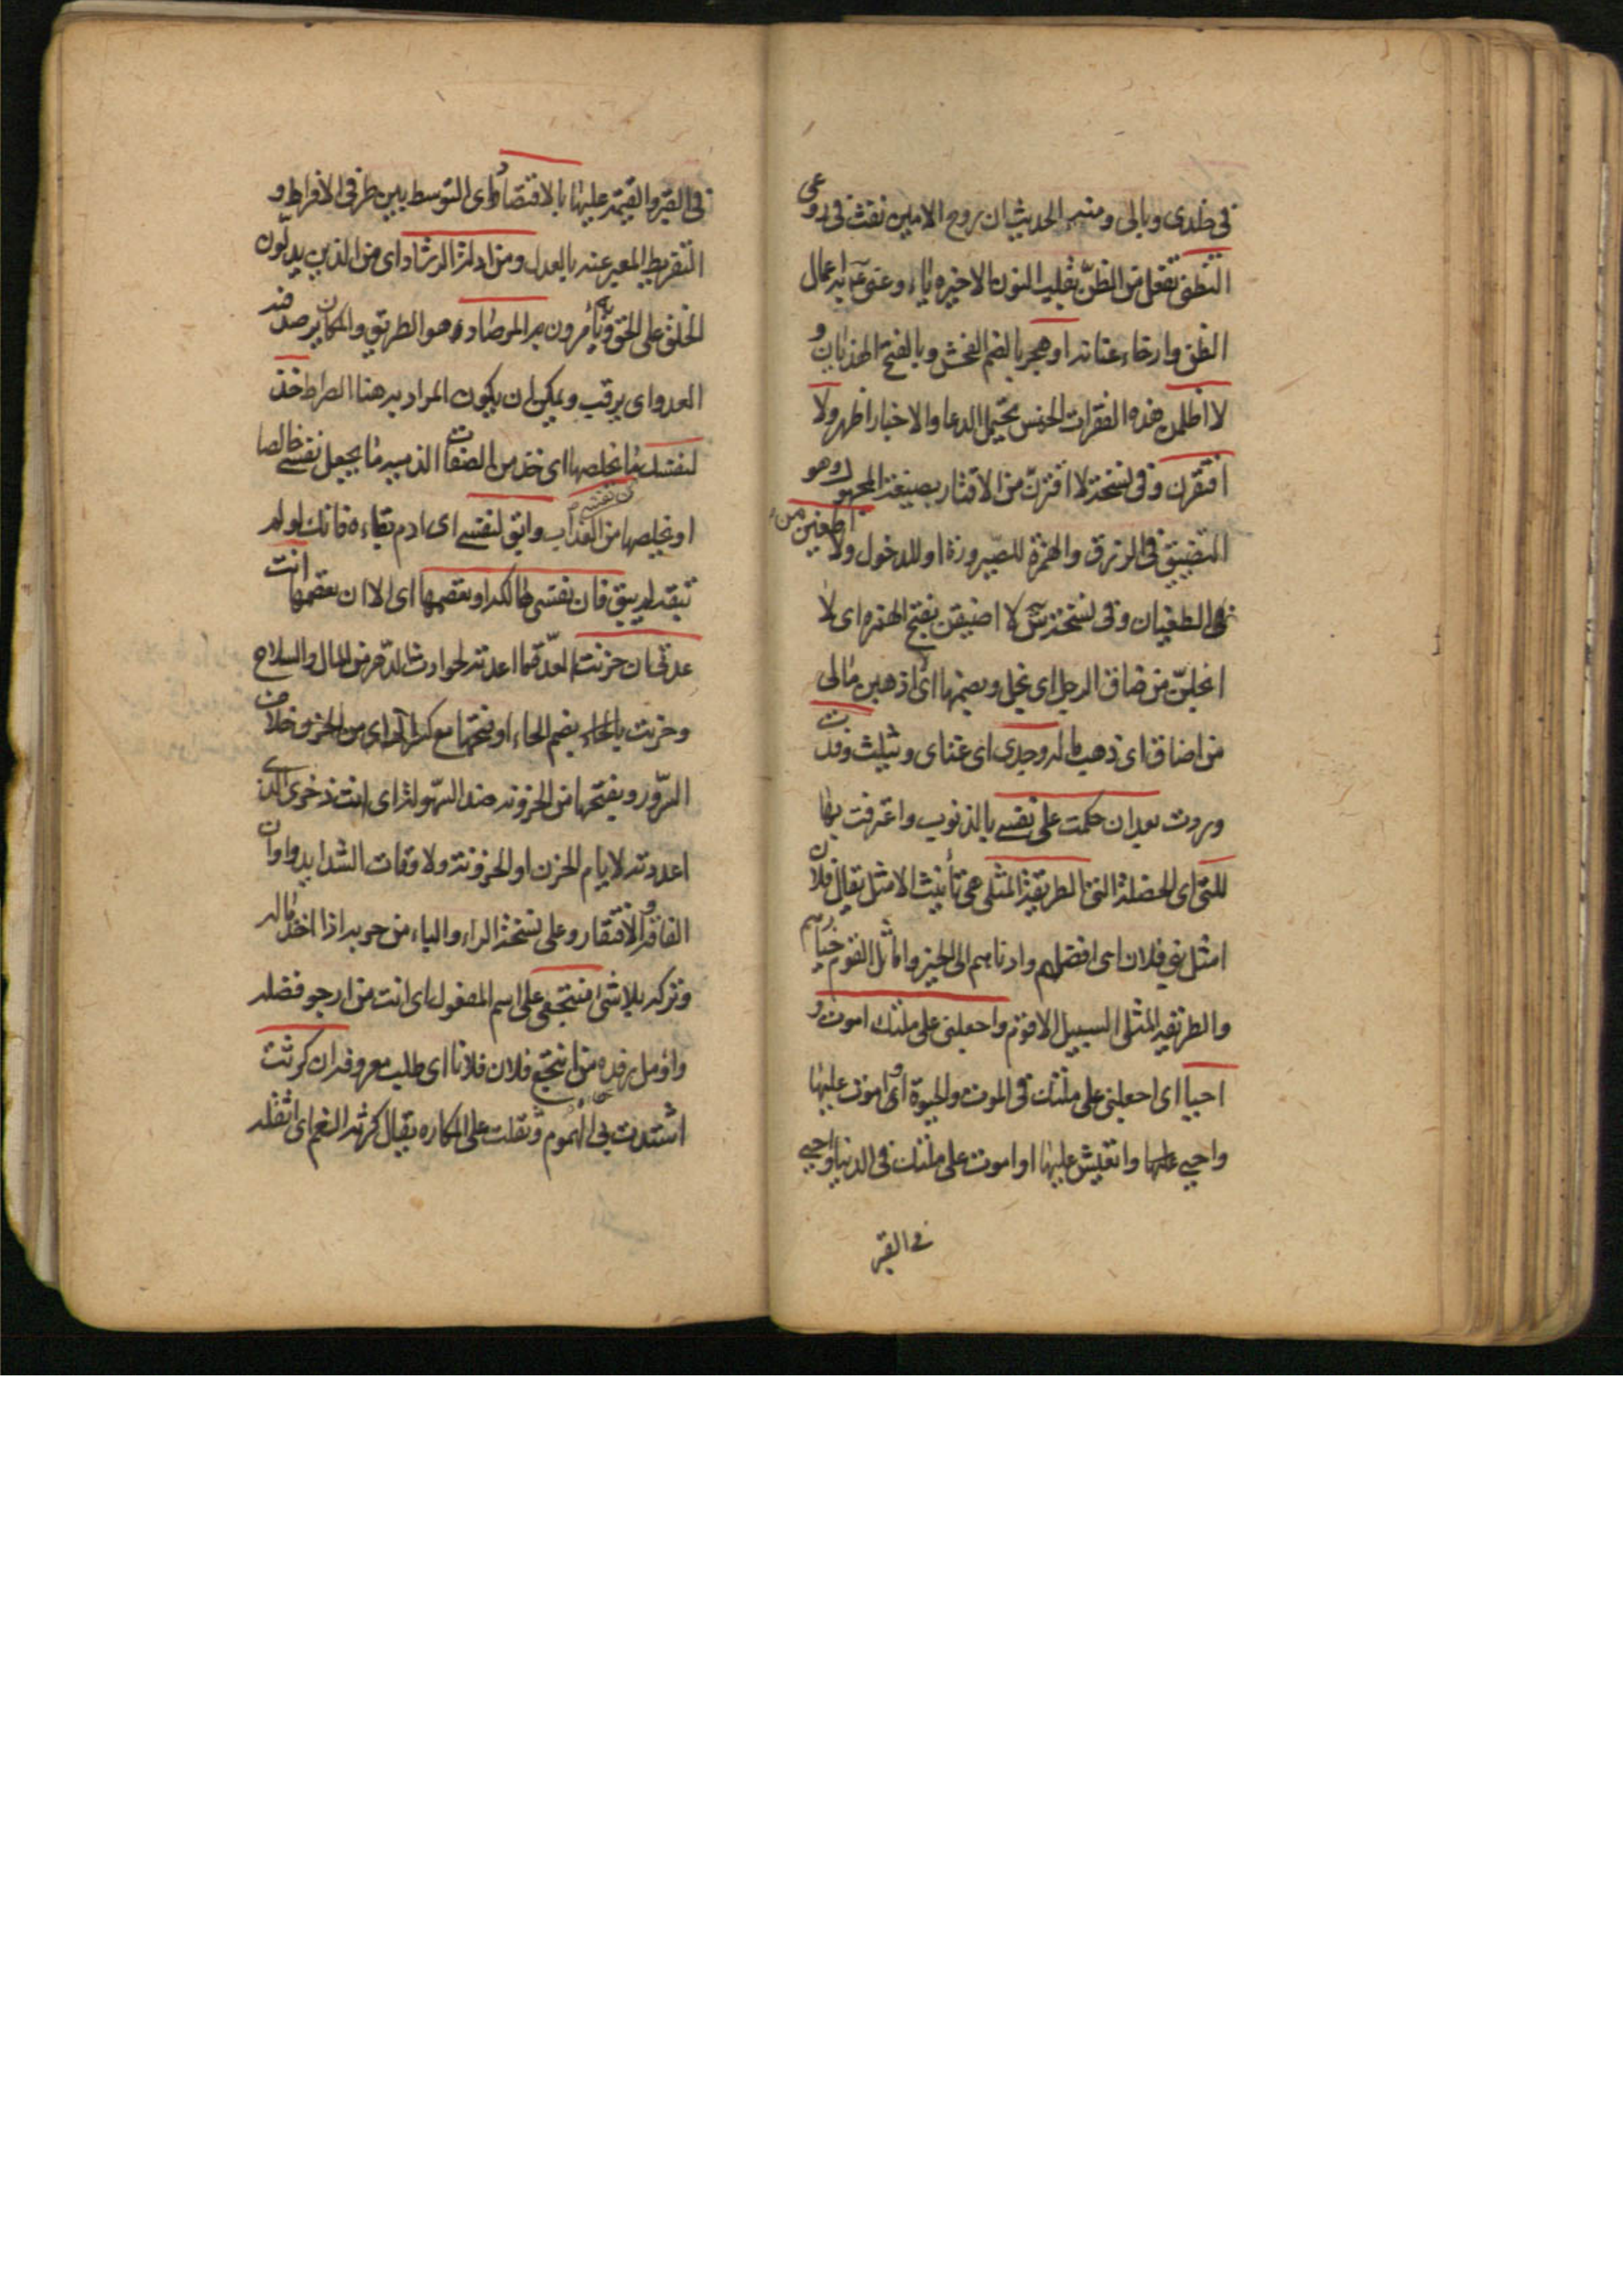 في خلدي وبالي ومنه الحديث ان روح الامين نفث في روعي
التظني تفعل من الظن بقلب النون الاخيرة ياء وعنى به اعمال
الظن وارخاء عنانه او هجر بالضم الفحش وبالفتح الهذيان و
لا اظلمن هذه الفقرات الخمس تحتمل الدعا والاخبار اظهر ولا
افتقرن وفي نسخة لا اقترن من الاقتار بصيغة المجهول وهو
التضييق في الرزق والهمزة للصيرورة او للدخول ولا اطغين من
في الطغيان وفي نسخة س لا اضيقن بفتح الهمزة اى لا
ابخلن من ضاق الرجل اى بخل وبضمها اى اذهبن مالي
من اضاق اى ذهب ماله وجدى اى غناى وبثلث وفدت
وردت بعد ان حكمت على نفسي بالذنوب واعترفت بها
للتي اى للخصلة التي الطريقة المثلى هي تأنيث الامثل يقال فلان
امثل بني فلان اى افضلهم وادناهم الى الخير واماثل القوم خيارهم
والطريقة المثلى السبيل الاقوم واجعلني على ملتك اموت و
احيا اى اجعلني على ملتك في الموت والحيوة اى اموت عليها
واحيى عليها واتعيش عليها او اموت على ملتك في الدنيا واحيى
في القبر
في القبر والقيمة عليها بالاقتصاد اى التوسط بين طرفي الافراط و
التفريط المعبر عنه بالعدل ومن ادلة الرشاد اى من الذين يدلون
الخلق على الحق ويأمرون به المرصاد هو الطريق والمكان يرصد فيه
العدو اى يرقب ويمكن ان يكون المراد به هنا الصراط خذ
لنفسك ما يخلصها اى خذ من الصفات الذميمه ما يجعل نفسي خالصا
او يخلصها من العذاب وابق لنفسي اى ادم بقاءه فانك لو لم
تبقه لم يبق فان نفسي هالكة او تعصمها اى الا ان تعصمها انت
عدتي ان حزنت العدة ما اعددته لحوادث الدهر من المال والسلاح
وحزنت بالحاء بضم الحاء او فتحها مع كسر الزاى من الحزن خلاف
السرور وبفتحها من الحزونة ضد السهولة اى انت ذخرى الذى
اعددته لايام الحزن او الحزونة ولاوقات الشدايد واوان
الفاقة والافتقار وعلى نسخة الراء والباء من حربه اذا اخذ ماله
وتركه بلا شئ منتجعي على اسم المفعول اى انت من ارجو فضله
واؤمل رفده من انتجع فلان فلانا اى طلب معروفه ان كرثت
اشتدت بي الهموم وثقلت على المكاره يقال كرثه الغم اى اثقله